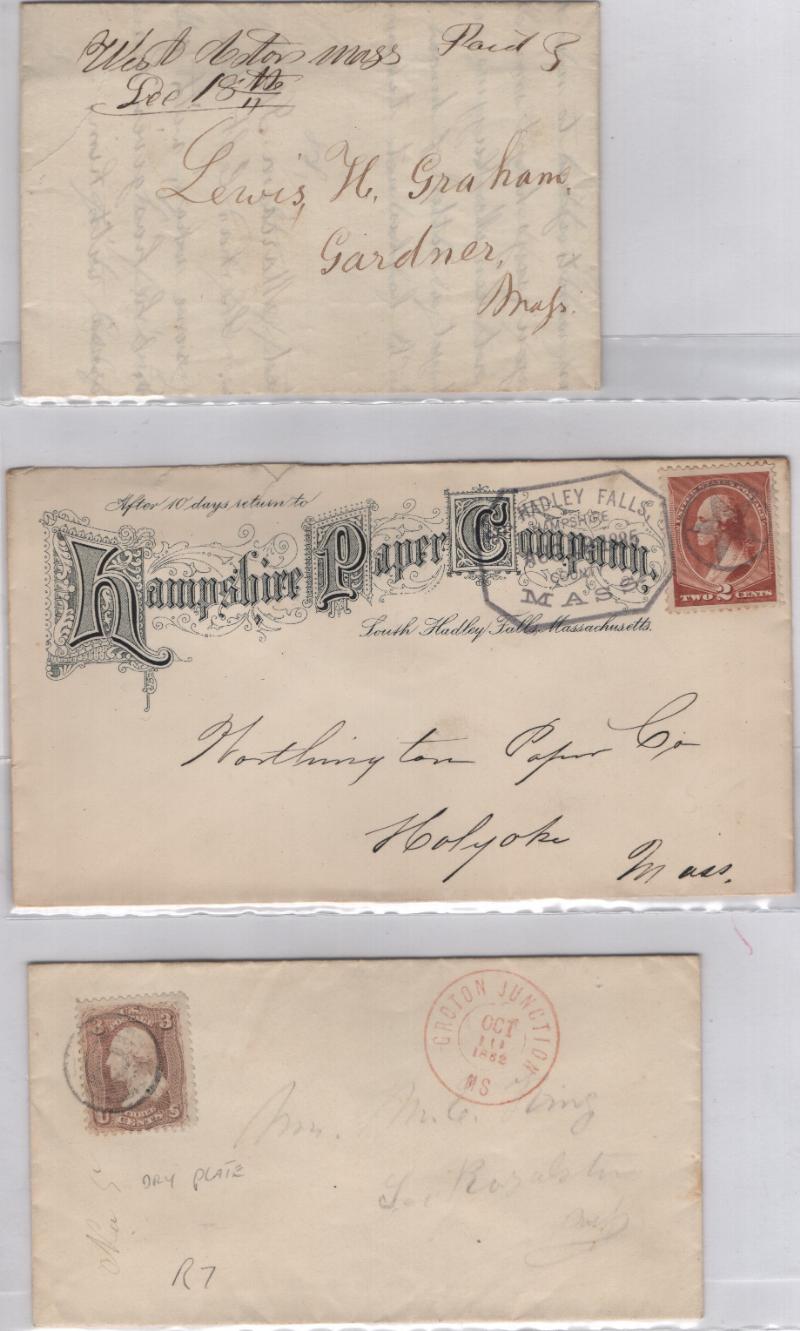 West Acton Mass Paid 3
Dec 18th
Lewis, H. Graham.
Gardner,
Mass.
After 10 days return to
Hampshire Paper Company,
South Hadley Falls, Massachusetts.
HADLEY FALLS,
HAMPSHIRE
COUNTY
MASS
UNITED STATES POSTAGE
TWO 2 CENTS
Worthington Paper Co
Holyoke
Mass.
3 3
U.S. POSTAGE
U THREE CENTS S
GROTON JUNCTION
OCT
1862
MS
Mrs. M. C. King
So. Royalston
Mass
DRY PLATE
R7